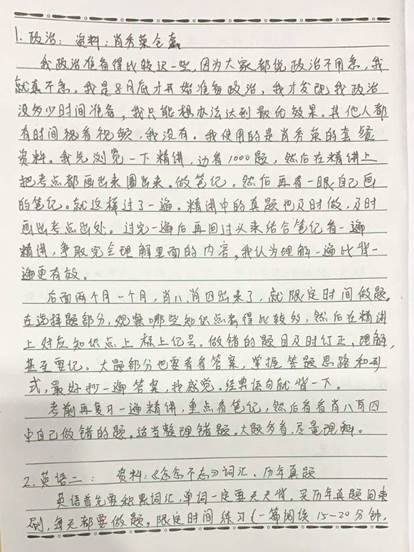 1. 政治: 资料: 肖秀荣全套
我政治准备得比较迟一些,因为大家都说政治不用急,我
就真不急。我是8月底才开始准备政治,我才发现我政治
没多少时间准备,我只能想办法达到最的效果。其他人都
有时间视看视频,我没有。我使用的是肖秀荣的套
资料。我先浏览一下精讲,边看1000题,然后在精讲上
把考点都画出来圈出来,做笔记,然后再看一眼自己画
的笔记。就这样过了一遍。精讲中的真题也及时做,及时
画出考点出处。过完一遍后再回过头来结合笔记看一遍
精讲,争取完全理解里面的内容。我认为理解一遍比背一
遍更有效。
后面两个月一个月,肖八肖四出来了,就限定时间做题,
在选择题部分,观察哪些知识点考得比较的,然后在精讲
上对应知识点上标上记号。做错的题目及时订正,理解,
甚至要记。大题部分也要看看答案,掌握答题思路和形
式,最好抄一遍答案,我感觉,经典语句就背一下。
考前再复习一遍精讲,重点看笔记,然后看看肖八肖四
中自己做错的题。适当整理错题。大题多看,尽量理解。
2. 英语二: 资料:《念念不忘》词汇、历年真题
英语首先要积累词汇,单词一定要天天背。买历年真题回来
刷,每天都要做题。限定时间练习(一篇阅读15-20分钟,